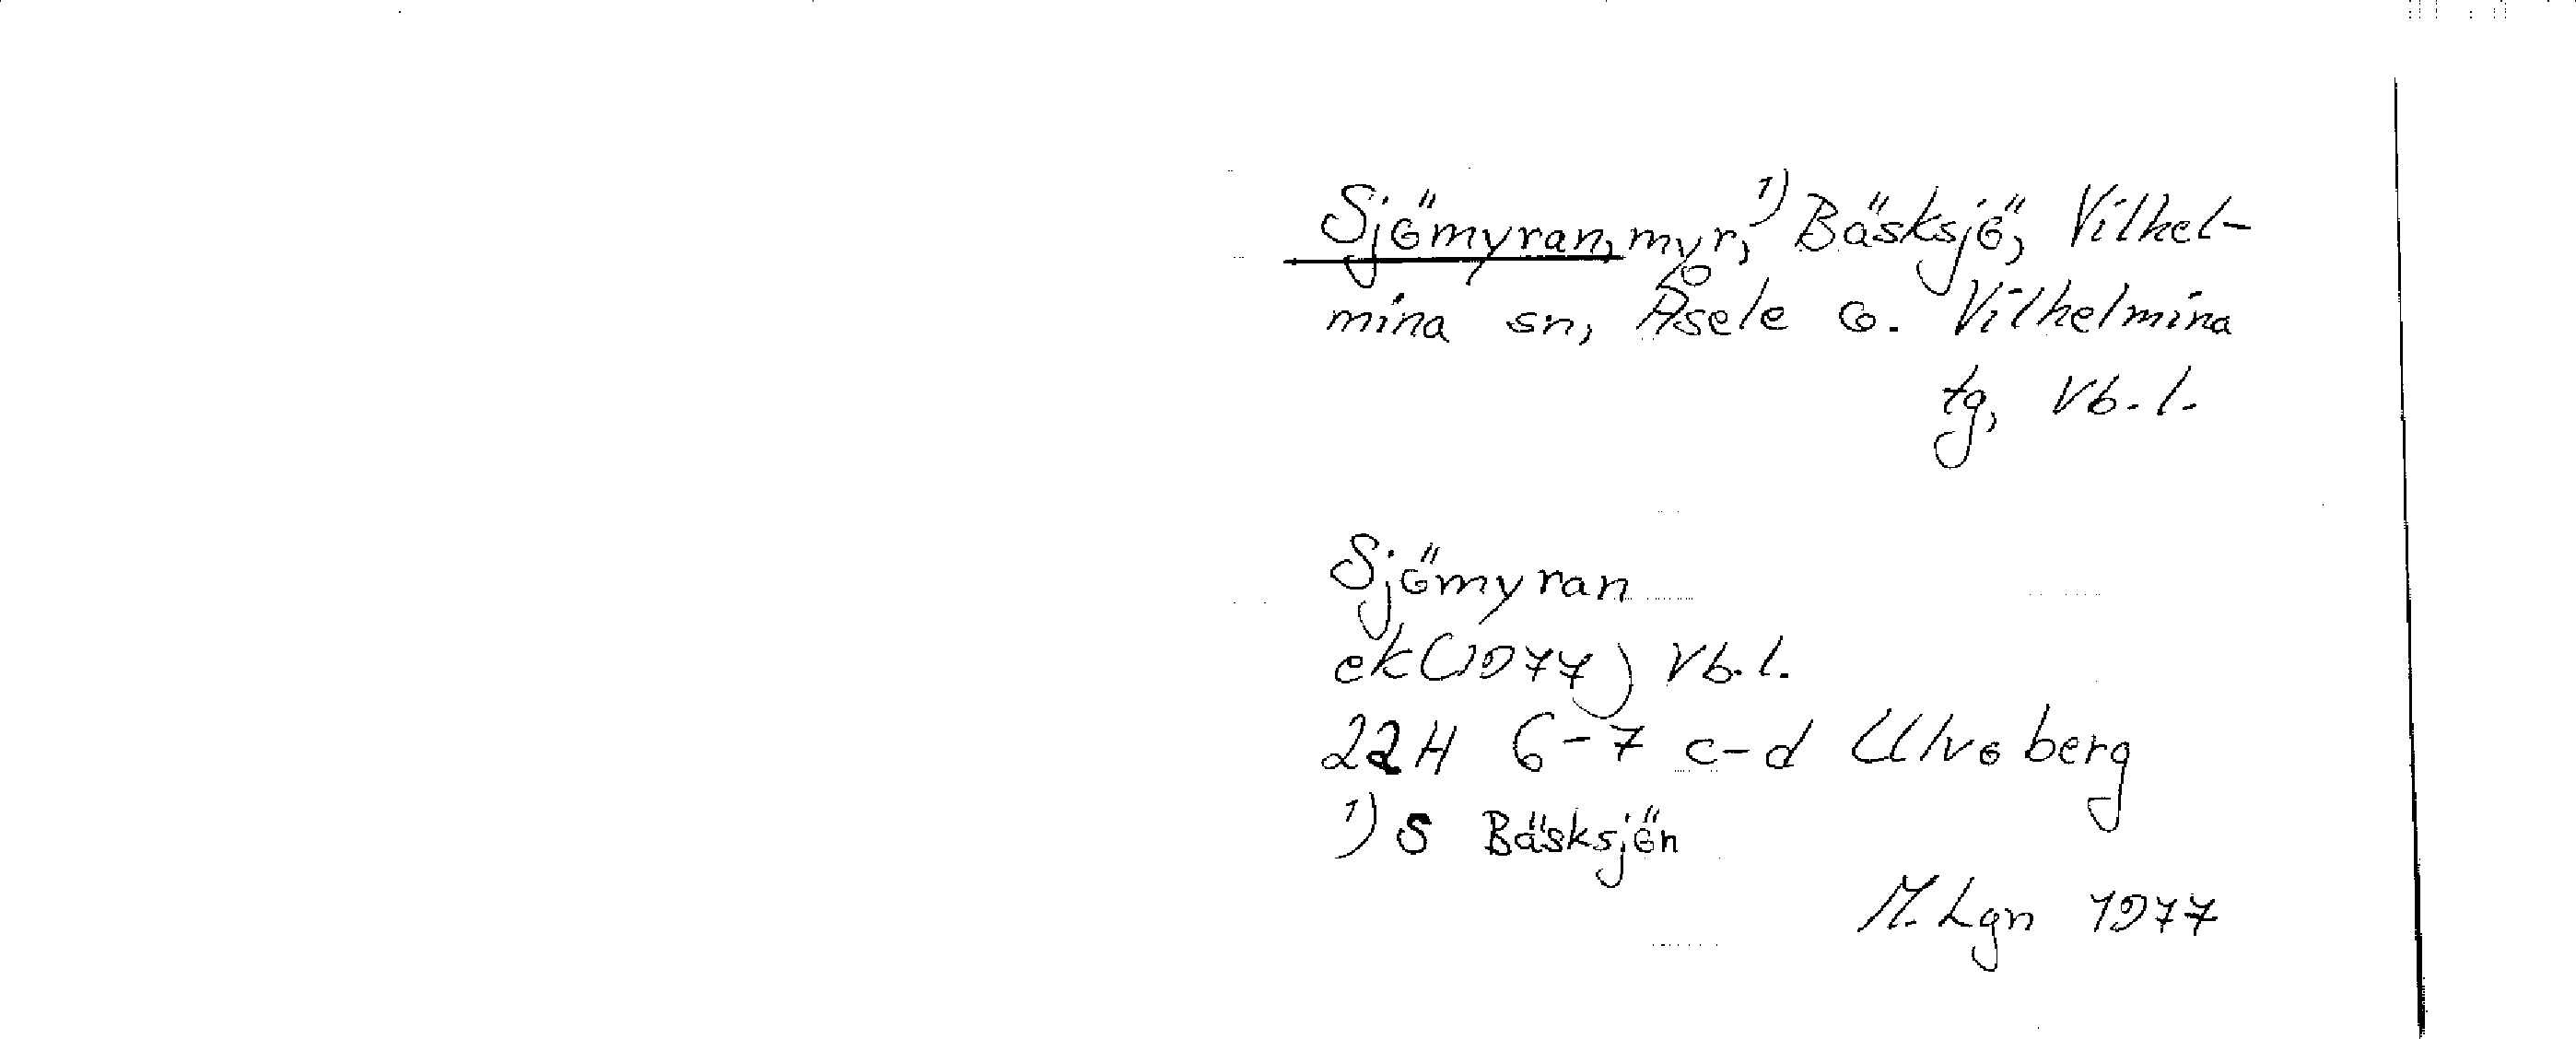 Sjömyran, myr, 1) Bäsksjö, Vilhel-
mina sn, Åsele o. Vilhelmina
tg, Vb. l.
Sjömyran
ek (1977) Vb. l.
22H 6-7 c-d Ulvoberg
1) S Bäsksjön
M. Lgn 1977